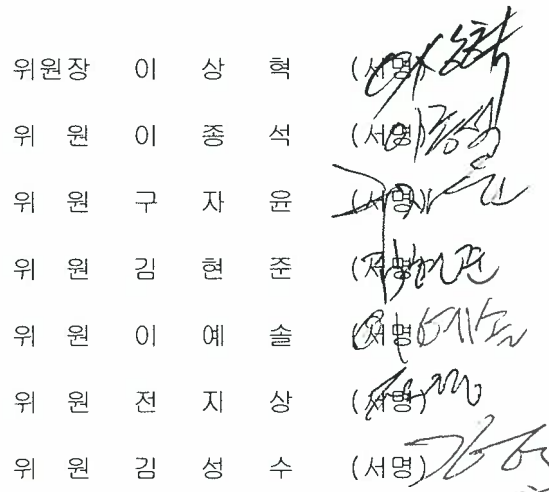 위원장 이 상 혁 (서명)
위 원 이 종 석 (서명)
위 원 구 자 윤 (서명)
위 원 김 현 준 (서명)
위 원 이 예 솔 (서명)
위 원 전 지 상 (서명)
위 원 김 성 수 (서명)